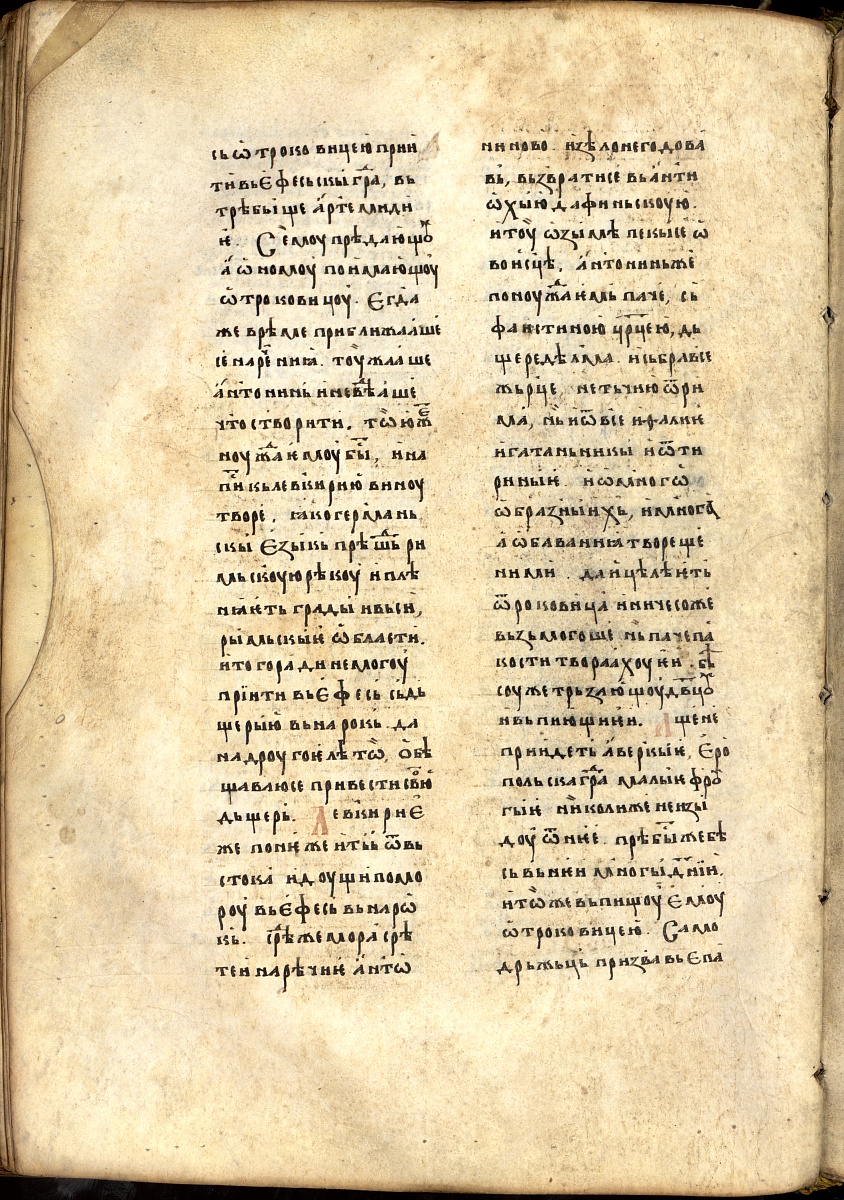 сь ѡтроковицею прїи
ти вь Ефесьскы гра, вь
трѣбыще артемиди
ѥ. Семоу прѣдающо
а ѡномоу поимающоу
ѡтроковицоу. Егда
же врѣме приближааше
се нарѣчниꙗ. тоужааше
антонинь и невѣаше
что створити. тѡюже
ноужаѥмоу бы, и на
пи кь левкирию виноу
творе. ꙗко германь
скы Езыкь прѣшь ри
мьскоую рѣкоу и плѣ
нꙗѥть грады и вьси,
рымьскыѥ ѡбласти.
и того ради не могоу
прїити вь Ефесь сь дь
щерыю вь нарокь. да
на дроугоѥ лѣтѡ, ѡбѣ
щаваюсе привести свою
дьщерь. Левкирие
же понѥже и тьи ѿ вь
стока идоущи по мо
роу вь Ефесь вь нарѡ
кь. срѣ же мора срѣ
те и нарѣчниѥ антѡ
ниново. и зѣло негодова
вь, вьзврати се вь анти
ѡхыю дафиньскоую.
и тоу ѡзымѣ пекысе ѡ
воисцѣ. антониньже
поноужаѥмь паче, сь
фаистиною црцею, дь
щере дѣлма. и сьбра все
жьрце, не тьчию ѿ ри
ма, нь и ѿ все ифалиѥ
и гатаньникы и ѿ ти
риныѥ. и ѡ многѡ
ѡбразныихь, и многа
а ѡбаваниꙗ твореще
ними. да ицѣлѣѥть
ѿроковица и ничесоже
вьзьмогоше нь паче па
кости твораахоу ѥи. бѣ
соу же трьзающоу двцоу
и вьпиющи ѥи. Аще не
приидеть аверкыѥ, Еро
польска гра малыѥ фрѹ
гыѥ николиже не изы
доу ѿ нѥе. прѣбы же бѣ
сь вь ниѥи многы днїи.
и тѡжe вьпишоу Емоу
ѡтроковицею. Само
дрьжьць призва вь Епа